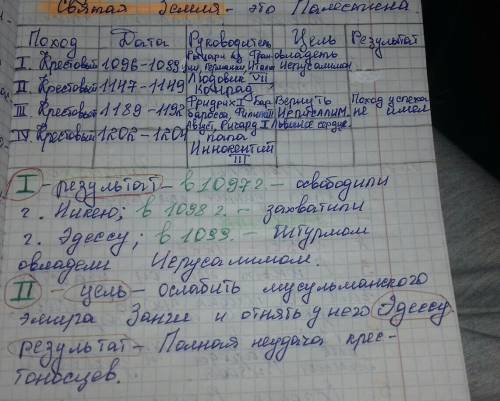 Святая Земля - это Палестина
Поход Дата Руководитель Цель Результат
I. Крестовый 1096-1099 Рыцари из Фран- овладеть
ции, Германии, Итали Иерусалимом
II Крестовый 1147-1149 Людовик VII,
Конрад
III Крестовый 1189-1192 Фридрих I Бар- Вернуть Поход успеха
баросса, Филипп II Иерусалим. не имел
Август, Ричард I Львиное сердце.
IV Крестовый 1202-1204 папа
Иннокентий
III
I - результат - в 1097 г - освободили
г. Никею; в 1098 г. - захватили
г. Эдессу; в 1099. - Штурмом
овладели Иерусалимом.
II - цель - ослабить мусульманского
эмира Занги и отнять у него Эдессу
результат - Полная неудача крес-
тоносцев.